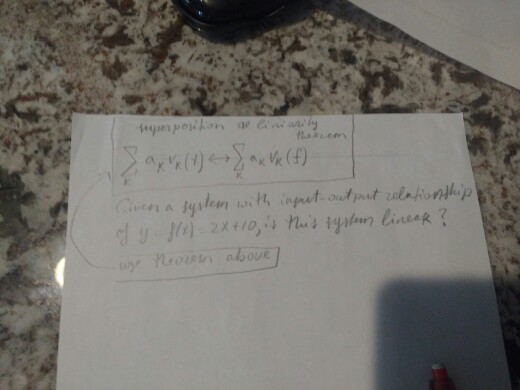 superposition or linearity
theorem
∑ₖ aₖ vₖ(t) ↔ ∑ₖ aₖ Vₖ(f)
Given a system with input-output relationship
of y = f(x) = 2x+10, is this system linear?
use theorem above